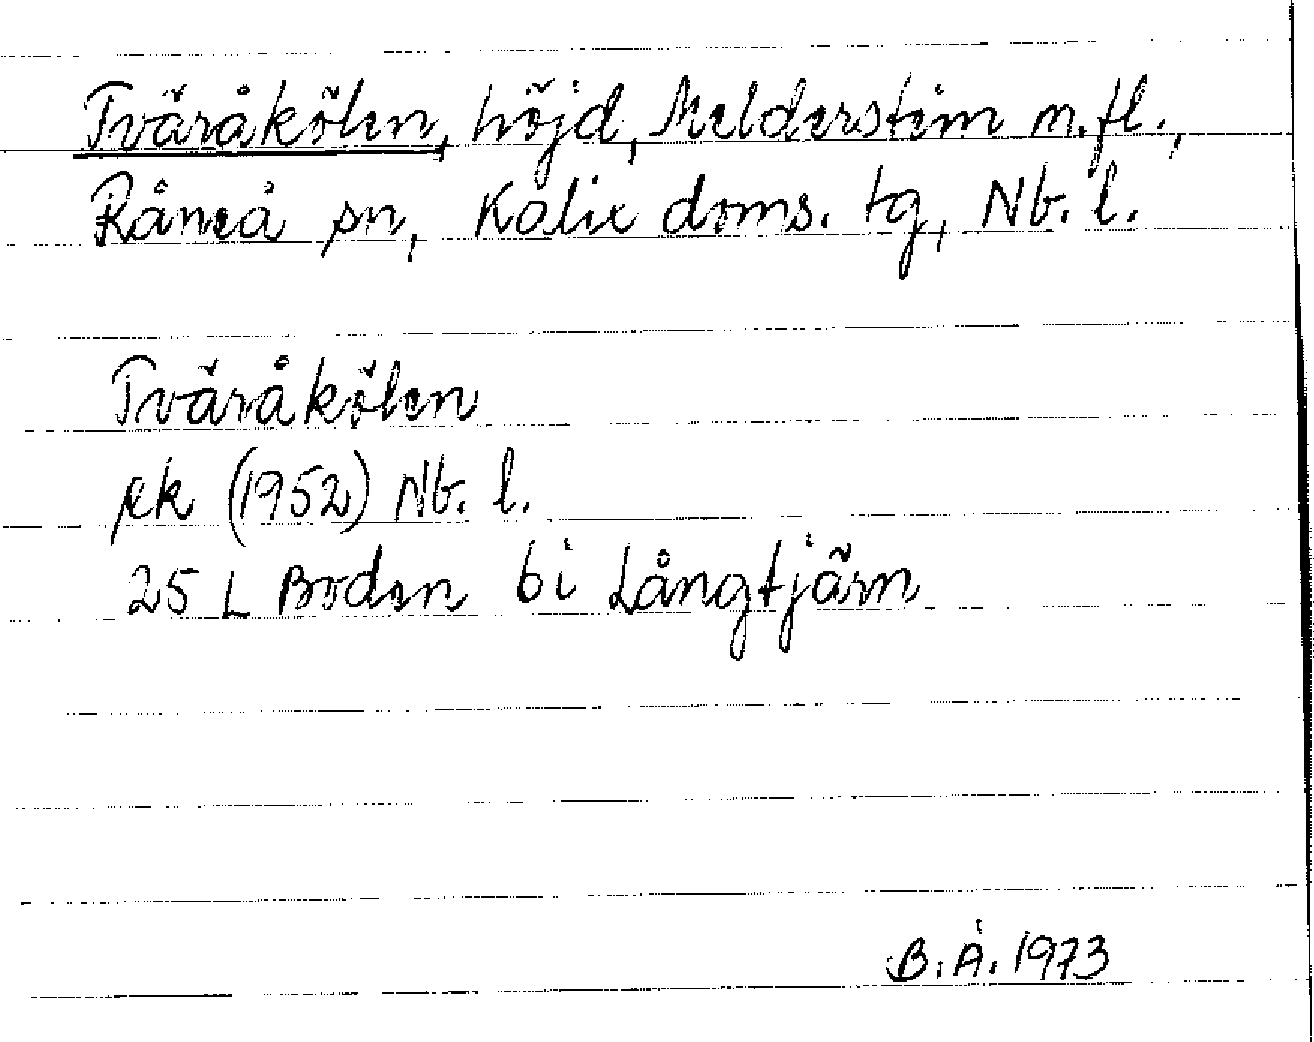 Tväråkölen, höjd, Melderstein m.fl.,
Råneå sn, Kalix doms. tg, Nb. l.
Tväråkölen
ek (1952) Nb. l.
25 L Boden bi Långtjärn
B.Å. 1973